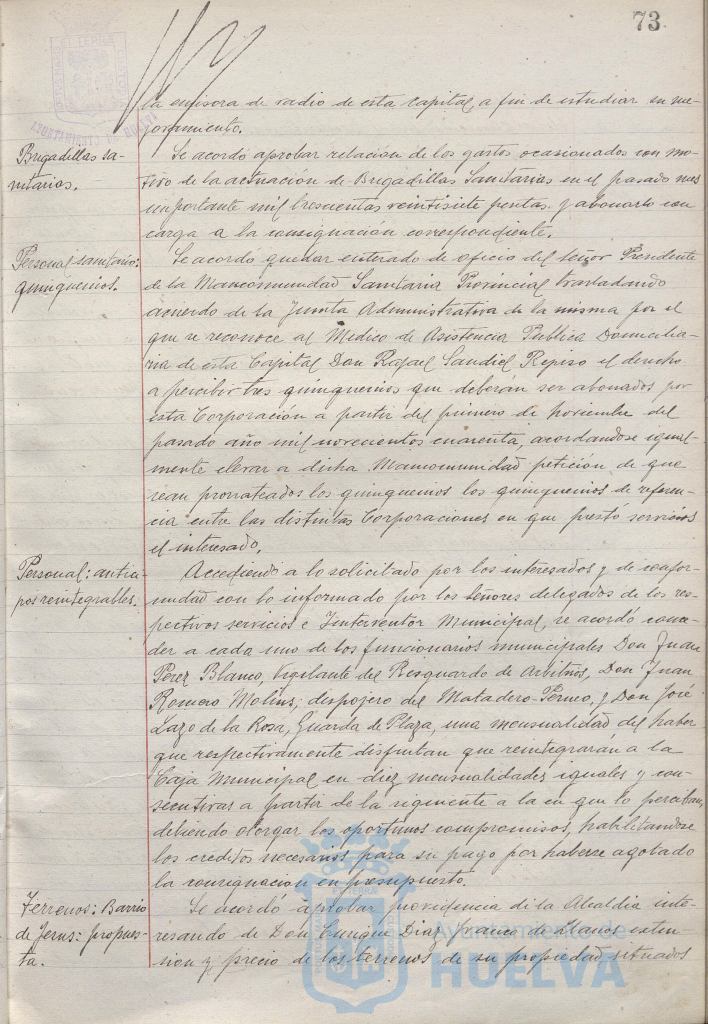 73
la emisora de radio de esta capital, a fin de estudiar su me-
joramiento.
Brigadillas sa-
nitarias.
Se acordó aprobar relación de los gastos ocasionados con mo-
tivo de la actuación de Brigadillas Sanitarias en el pasado mes
importante mil trescuentas veintisiete pesetas y abonarlo con
carga a la consignación correspondiente.
Personal sanitario:
quinquenios.
Se acordó quedar enterado de oficio del Señor Presidente
de la Mancomunidad Sanitaria Provincial trasladando
acuerdo de la Junta Administrativa de la misma por el
que se reconoce al Medico de Asistencia Publica Domicilia-
ria de esta Capital Don Rafael Sandiel Repiso el derecho
a percibir tres quinquenios que deberán ser abonados por
esta Corporación a partir del primero de Noviembre del
pasado año mil novecientos cuarenta, acordandose igual-
mente elevar a dicha Mancomunidad petición de que
sean prorrateados los quinquenios los quinquenios de referen-
cia entre las distintas Corporaciones en que prestó servicios
el interesado.
Personal: antici-
pos reintegrables.
Accediendo a lo solicitado por los interesados y de confor-
midad con lo informado por los Señores delegados de los res-
pectivos servicios e Interventor Municipal, se acordó conce-
der a cada uno de los funcionarios municipales Don Juan
Perez Blanco, Vigilante del Resguardo de Arbitrios, Don Juan
Romero Molins, despojero del Matadero Público, y Don José
Lazo de la Rosa, Guarda de Plaza, una mensualidad del haber
que respectivamente disfrutan que reintegrarán a la
Caja Municipal en diez mensualidades iguales y con-
secutivas a partir de la siguiente a la en que lo perciban,
debiendo otorgar los oportunos compromisos, habilitandose
los creditos necesarios para su pago por haberse agotado
la consignación en presupuesto.
Terrenos: Barrio
de Jerus: propues-
ta.
Se acordó aprobar providencia de la Alcaldia inte-
resando de Don Enrique Diaz y Franco de Llanos exten-
sion y precio de los terrenos de su propiedad situados
Ayuntamiento de
HUELVA